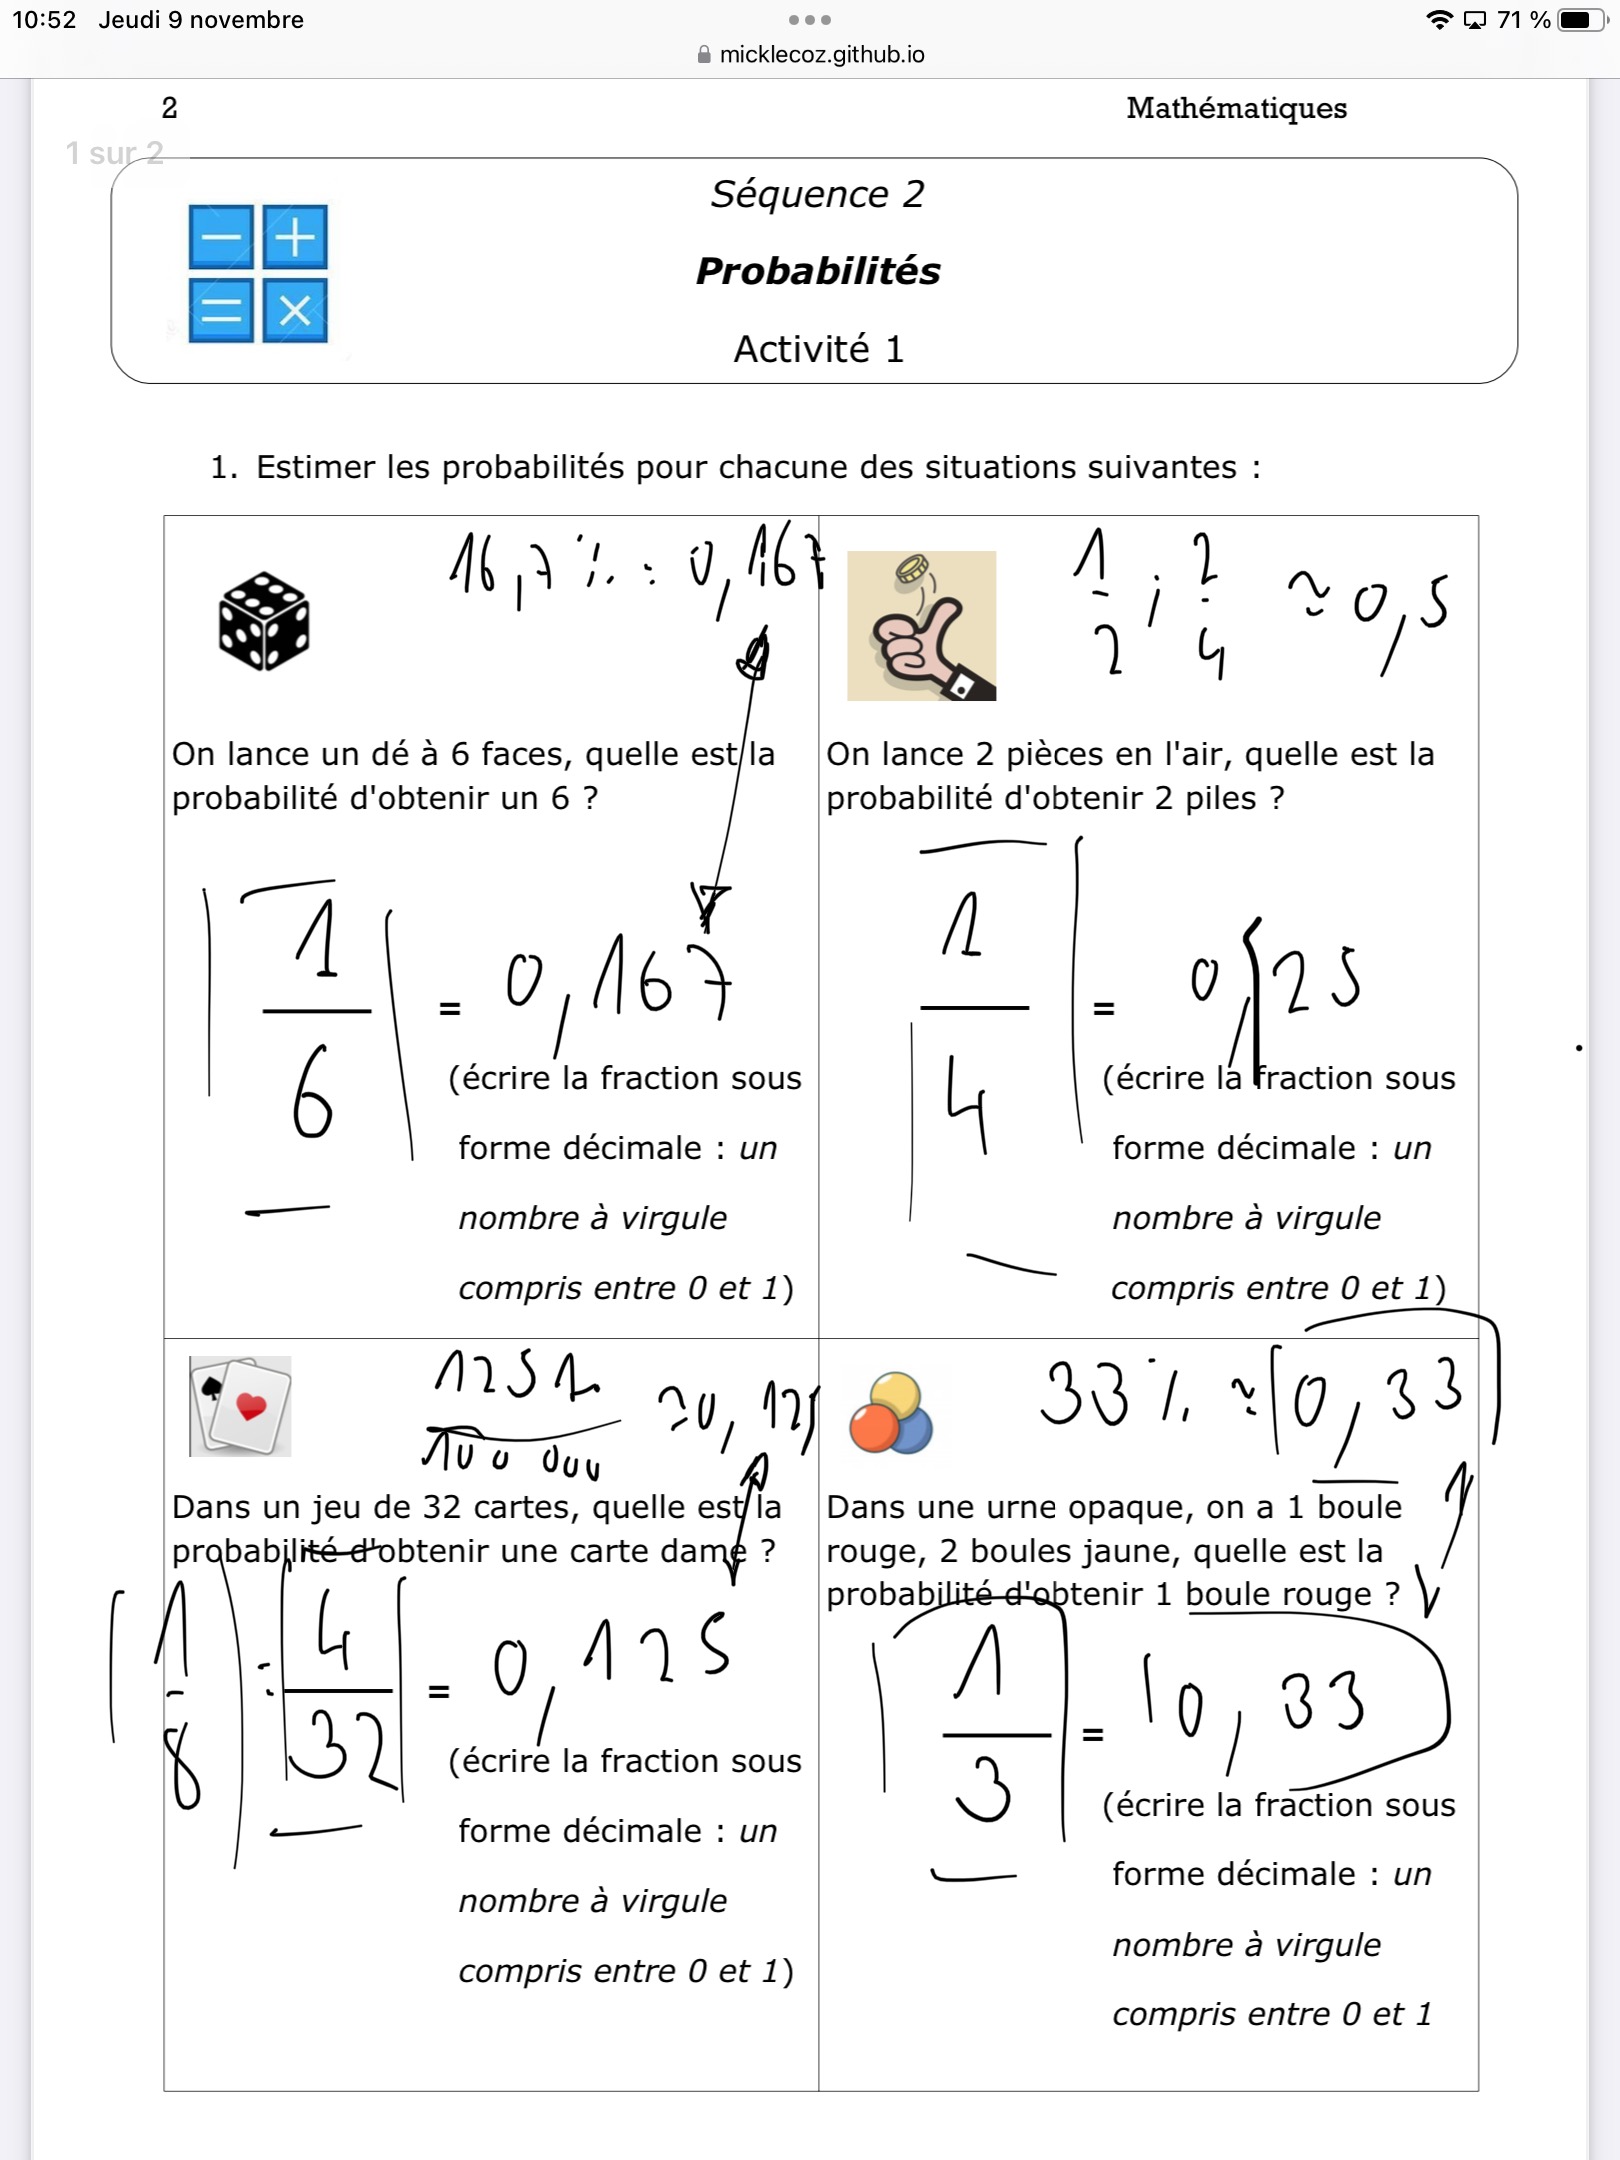 10:52 Jeudi 9 novembre
71 %
micklecoz.github.io
2 Mathématiques
1 sur 2
Séquence 2
Probabilités
Activité 1
1. Estimer les probabilités pour chacune des situations suivantes :
16,7 % : 0,167
On lance un dé à 6 faces, quelle est la
probabilité d'obtenir un 6 ?
1
6
= 0,167
(écrire la fraction sous
forme décimale : un
nombre à virgule
compris entre 0 et 1)
1 ; 2 ≃ 0,5
2 4
On lance 2 pièces en l'air, quelle est la
probabilité d'obtenir 2 piles ?
1
4
= 0,25
(écrire la fraction sous
forme décimale : un
nombre à virgule
compris entre 0 et 1)
1251
100 000
≃ 0,125
Dans un jeu de 32 cartes, quelle est la
probabilité d'obtenir une carte dame ?
1 = 4
8 32
= 0,125
(écrire la fraction sous
forme décimale : un
nombre à virgule
compris entre 0 et 1)
33 % ≃ 0,33
Dans une urne opaque, on a 1 boule
rouge, 2 boules jaune, quelle est la
probabilité d'obtenir 1 boule rouge ?
1
3
= 0,33
(écrire la fraction sous
forme décimale : un
nombre à virgule
compris entre 0 et 1